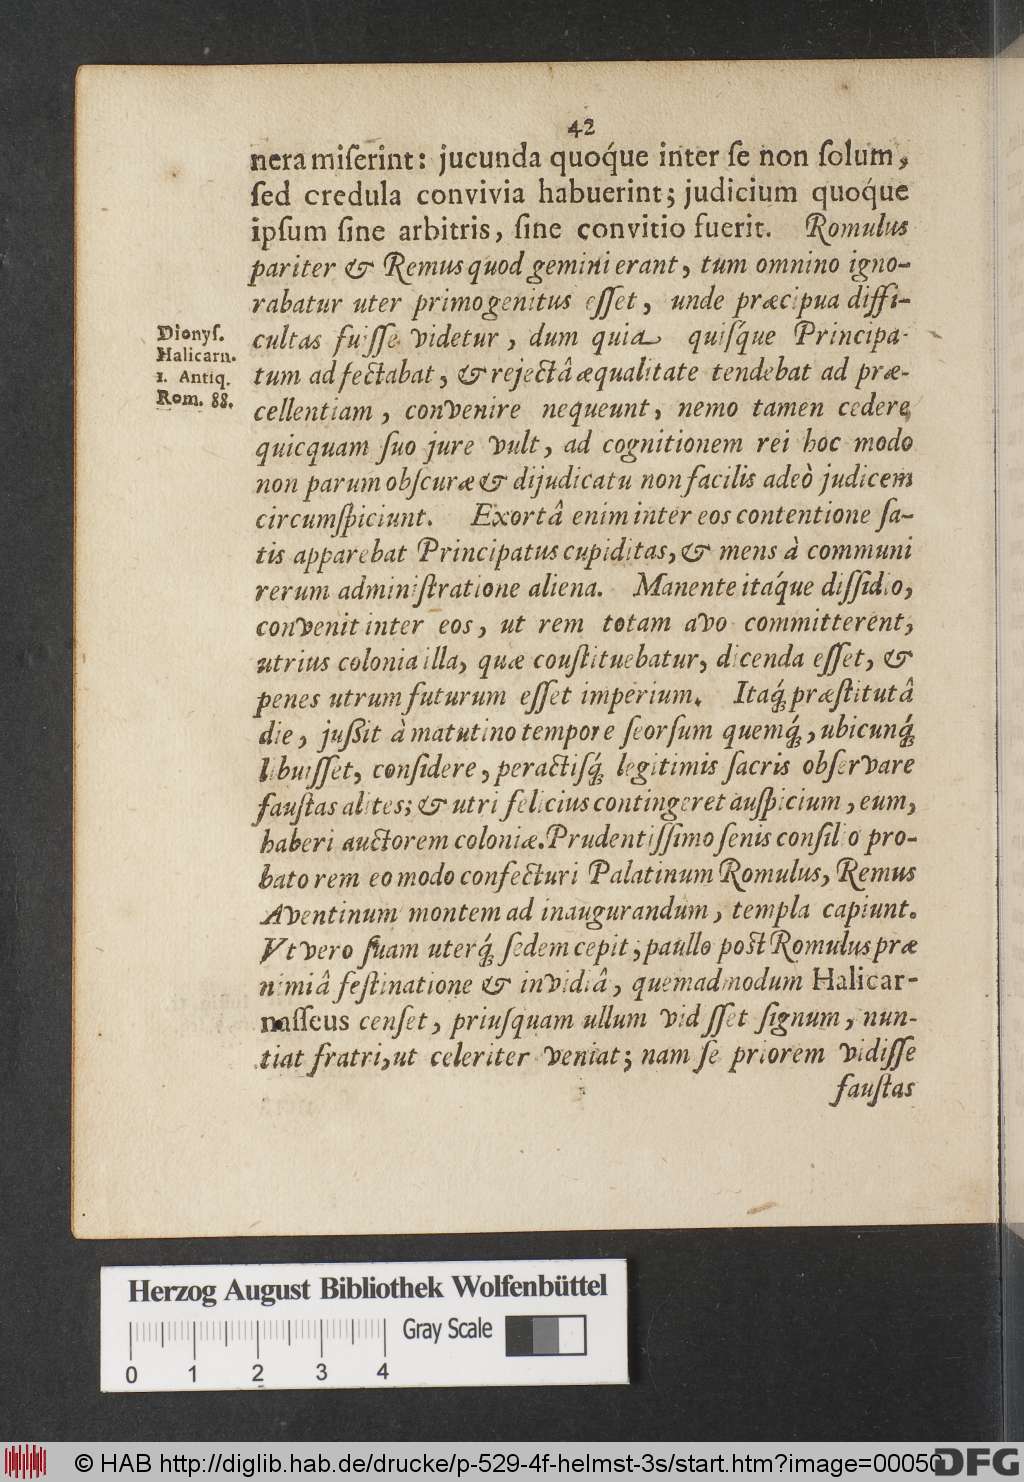 42
nera miſerint: jucunda quoq́ue inter ſe non ſolum,
ſed credula convivia habuerint; judicium quoq́ue
ipſum ſine arbitris, ſine convitio fuerit. Romulus
pariter & Remus quod gemini erant, tum omnino igno-
rabatur uter primogenitus eſſet, unde præcipua diffi-
cultas fuiſſe videtur, dum quia quiſq́ue Principa-
tum adfectabat, & rejectâ æqualitate tendebat ad præ-
cellentiam, convenire nequeunt, nemo tamen cedere
quicquam ſuo jure vult, ad cognitionem rei hoc modo
non parum obſcuræ & dijudicatu non facilis adeò judicem
circumſpiciunt. Exortâ enim inter eos contentione ſa-
tis apparebat Principatus cupiditas, & mens à communi
rerum adminiſtratione aliena. Manente itaq́ue diſſidio,
convenit inter eos, ut rem totam avo committerent,
utrius colonia illa, quæ couſtituebatur, dicenda eſſet, &
penes utrum futurum eſſet imperium. Itaq́; præſtitutâ
die, jußit à matutino tempore ſeorſum quemq́;, ubicunq́;
libuiſſet, conſidere, peractiſq́; legitimis ſacris obſervare
fauſtas alites; & utri felicius contingeret auſpicium, eum,
haberi auctorem coloniæ. Prudentiſſimo ſenis conſilio pro-
bato rem eo modo confecturi Palatinum Romulus, Remus
Aventinum montem ad inaugurandum, templa capiunt.
Vt vero ſuam uterq́; ſedem cepit; paullo poſt Romulus præ
nimiâ feſtinatione & invidiâ, quemadmodum Halicar-
naſſeus cenſet, priuſquam ullum vid ſſet ſignum, nun-
tiat fratri, ut celeriter veniat; nam ſe priorem vidiſſe
fauſtas
Dionyſ.
Halicarn.
1. Antiq.
Rom. 88.
Herzog August Bibliothek Wolfenbüttel
Gray Scale
0 1 2 3 4
© HAB http://diglib.hab.de/drucke/p-529-4f-helmst-3s/start.htm?image=00050
DFG